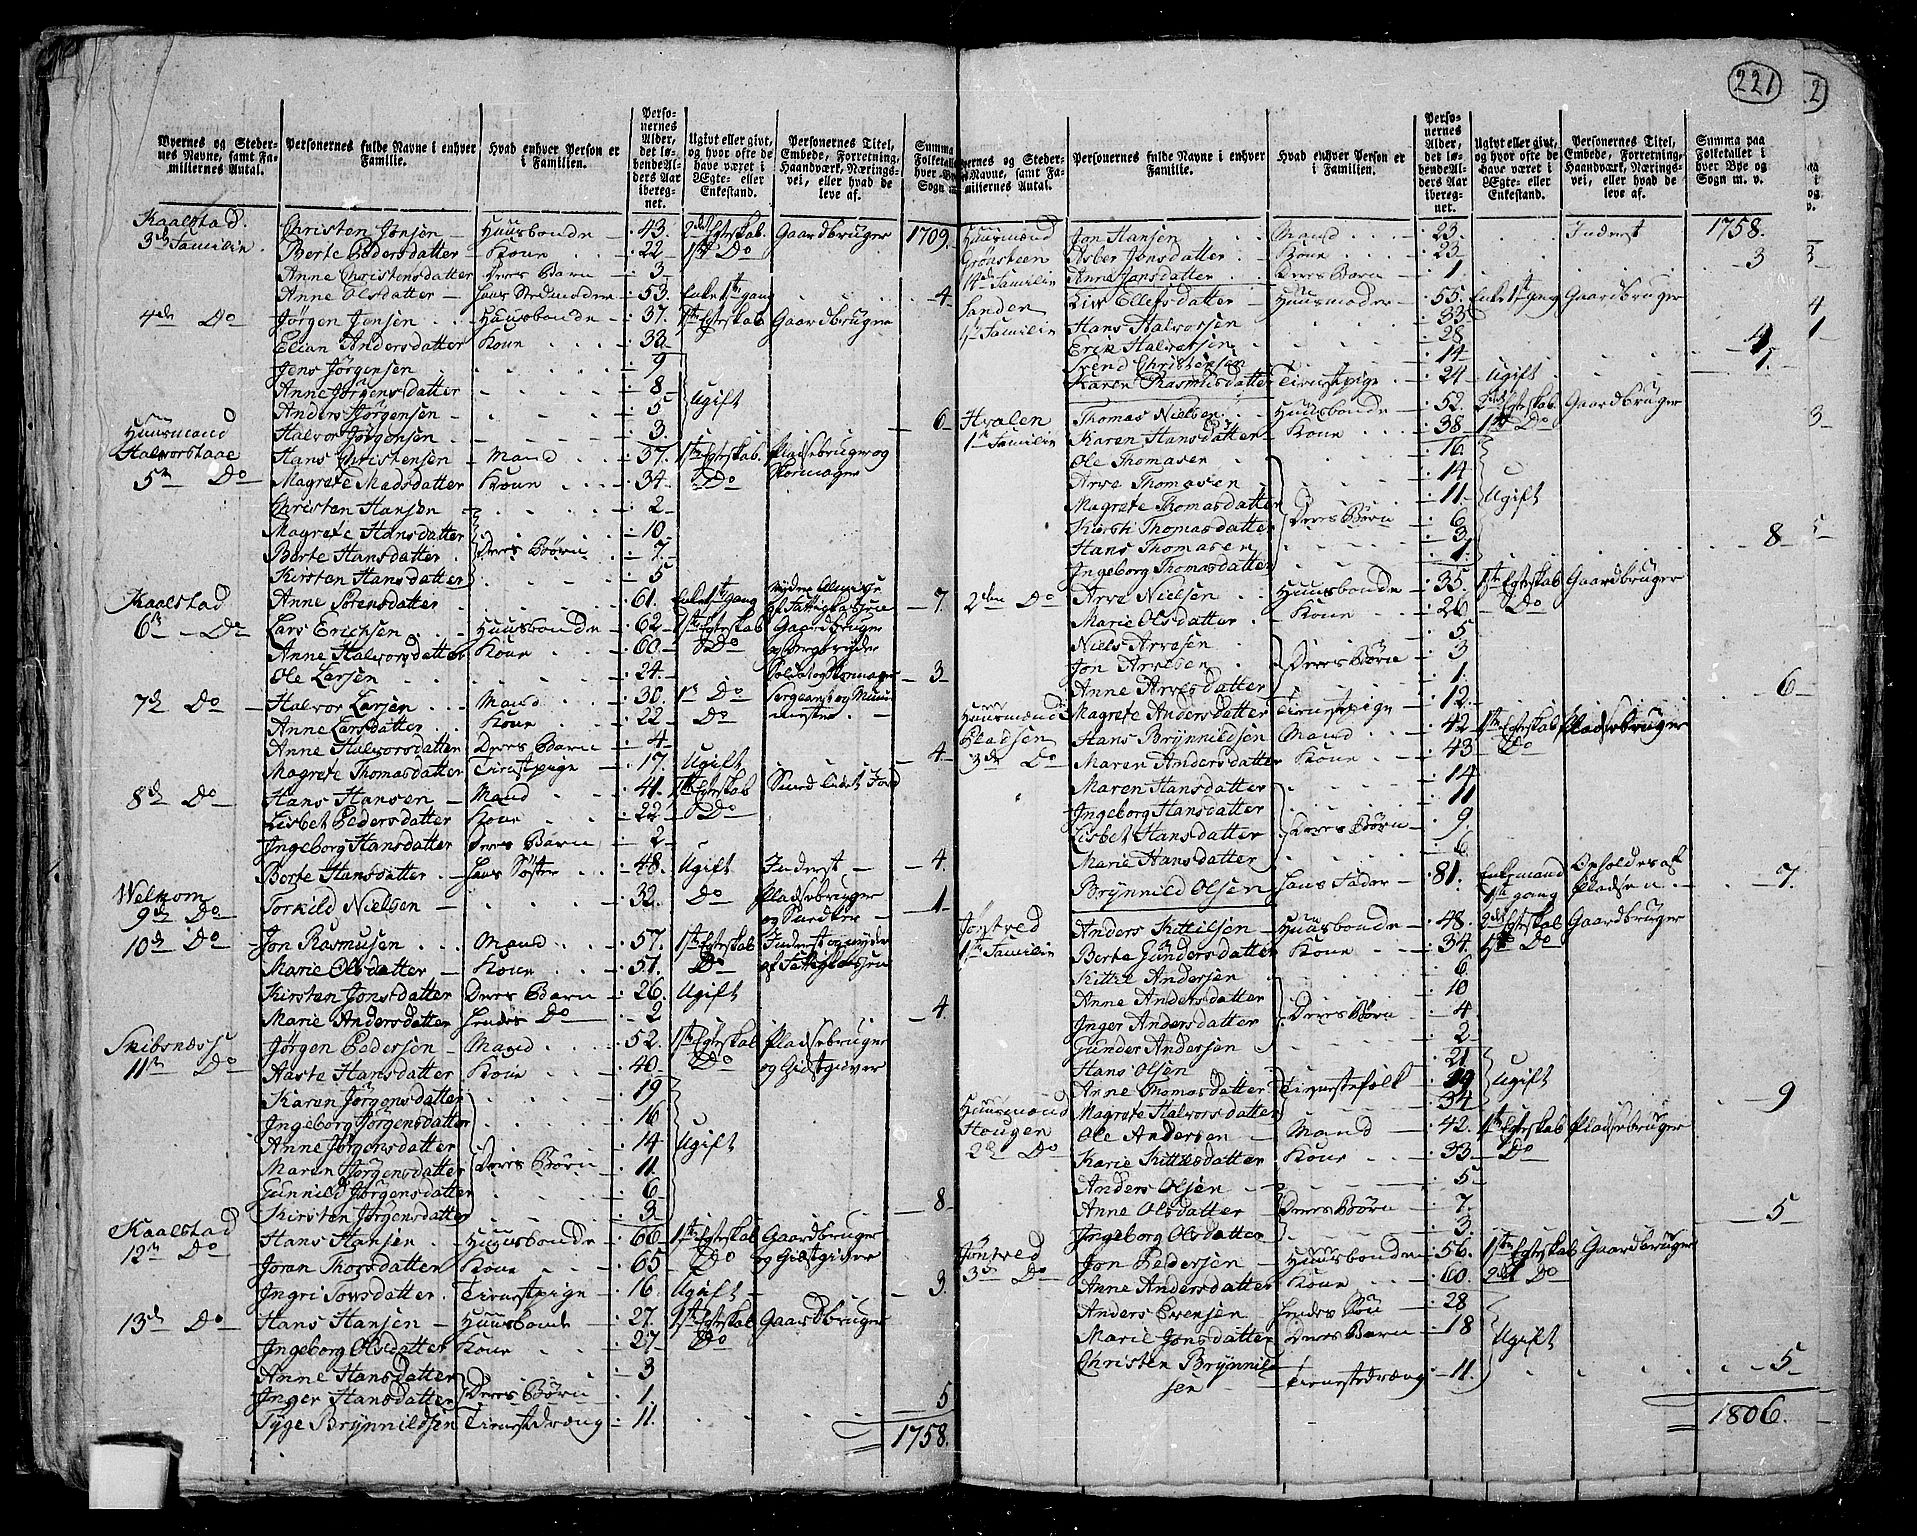 221
Byernes og Stedernes Navne, samt Familiernes Antal.
Personernes fulde Navne i enhver Familie.
Hvad enhver Person er i Familien.
Personernes Alder, det løbende Alders Aar iberegnet.
Ugivt eller givt, og hvor ofte de have været i Ægte- eller Enkestand.
Personernes Titel, Embede, Forretning, Haandværk, Næringsvei, eller hvad de leve af.
Summa Folketallet hver Bye Sogn m.
Kaalstad. Christen Jensen - Huusbonde - 43. 2det Egteskab. Gaardbruger 1709.
3de Familie Berte Pedersdatter - Kone 22 1ste Do
Anne Christensdatter Deres Barn - 3
Anne Olsdatter - hans Stedmoder 53. Enke 1ste gang 4.
4de Do Jørgen Jensen Huusbonde 37. 1ste Egteskab Gaardbruger
Elian Andersdatter Kone 33
Jens Jørgensen 9
Anne Jørgensdatter 8 Ugift
Anders Jørgensen 5
Huusmænd Halvor Jørgensen 3. 6
Halvorstaae Hans Christensen - Mand 37 1ste Egteskab. Pladsebruger og
5te Do Magrete Madsdatter Kone 34 Do Skomager
Christen Hansen 2
Magrete Hansdatter 10
Berte Hansdatter Deres Børn 7
Kirsten Hansdatter 5
Kaalstad Anne Sørensdatter 61. Enke 1ste gang 7.
6te Do Lars Erichsen Huusbonde 62 1ste Egteskab Gaardbruger
Anne Halvorsdatter Kone 60 Do
Ole Larsen 24. Soldat og Skomager 3
7de Do Halvor Larsen Mand 30. 1ste Do Sergeant og
Anne Larsdatter Kone 22 Do
Anne Halvorsdatter Deres Barn 4
Magrete Thomasdatter Tienestpige 17. Ugift 4
8de Do Hans Hansen - Mand 41. 1ste Egteskab
Lisbet Pedersdatter Kone 22 Do
Ingeborg Hansdatter Deres Barn 2
Berte Hansdatter - hans Søster 48. Ugift Inderst 4.
Welkom
9de Do Torkild Nielsen 32. Do Pladsebruger 1
10de Do Jon Rasmusen Mand 57. 1ste Egteskab Inderst og nyder
Marie Olsdatter Kone 51. Do
Kirsten Jonsdatter Deres Barn 26. Ugift
Marie Andersdatter hendes Do 2 4.
Skibsnæss Jørgen Pedersen - Mand 52. 1ste Egteskab Pladsebruger
11te Do Aaste Hansdatter Kone 40 Do og Giestgiver
Karen Jørgensdatter 19
Ingeborg Jørgensdatter 16
Anne Jørgensdatter 14 Ugift
Maren Jørgensdatter Deres Børn 11
Gunnild Jørgensdatter 6
Kirsten Jørgensdatter 3 8
Kaalstad Hans Hansen Huusbonde 66 1ste Egteskab Gaardbruger
12te Do Joran Thorsdatter Kone 65 Do og Giestgiver
Ingri Torsdatter. Tienestpige 16. Ugift 3.
13de Do Hans Hansen - Huusbonde 27. 1ste Egteskab Gaardbruger
Ingeborg Olsdatter Kone 27 Do
Anne Hansdatter 3
Inger Hansdatter Deres Børn 1.
Tyge Brynnildsen Tienestdræng 11. 5
1758.
Byernes og Stedernes Navne, samt Familiernes Antal.
Personernes fulde Navne i enhver Familie.
Hvad enhver Person er i Familien.
Personernes Alder, det løbende Alders Aar iberegnet.
Ugivt eller givt, og hvor ofte de have været i Ægte- eller Enkestand.
Personernes Titel, Embede, Forretning, Haandværk, Næringsvei, eller hvad de leve af.
Summa paa Folketallet i hver Bye og Sogn m. v.
Huusmænd Jon Hansen Mand 23. Inderst 1758.
Grønsteen Asber Jonsdatter Kone 23 3
14de Familie Anne Jonsdatter Deres Barn 1
Sanden Liv Ellefsdatter Huusmoder 55. Enke 1ste gang Gaardbruger
1ste Familie Hans Halvorsen 33
Erik Halvorsen 28
Svend Christensen 14
Karen Rasmusdatter Tienestpige 24 Ugift
Hvalen Thomas Nielsen Huusbonde 52. 2det Egteskab. Gaardbruger
1ste Familie Karen Hansdatter Kone 38 1ste Do
Ole Thomasen 16
Arve Thomasen 14
Magrete Thomasdatter 11 Ugift
Kirsti Thomasdatter Deres Børn 6
Hans Thomasen 3
Ingeborg Thomasdatter 1. 8
2den Do Arve Nielsen Huusbonde 35. 1ste Egteskab Gaardbruger
Marie Olsdatter Kone 26 Do
Niels Arvesen 5
Jon Arvesen Deres Børn 3
Anne Arvesdatter 1.
Huusmænd Magrete Andersdatter Tienestpige 12. 6
Pladsen Hans Brynnildsen Mand 42 1ste Egteskab Pladsebruger
3de Do Maren Andersdatter Kone 43 Do
Maren Hansdatter 14
Ingeborg Hansdatter 11
Lisbet Hansdatter Deres Børn 9
Marie Hansdatter 6
Brynnild Olsen hans Fader 81. Enkemand 1ste gang Opholdes af Pladsen 7.
Jøntved Anders Kittilsen Huusbonde 48. 2det Egteskab Gaardbruger
1ste Familie Berte Gundersdatter Kone 34. 1ste Do
Kittel Andersen 6
Anne Andersdatter 10
Inger Andersdatter Deres Børn 4
Gunder Andersen 2
Hans Olsen 21
Anne Thomasdatter Tienestefolk 19 Ugift
Huusmænd Magrete Halvorsdatter 34 9
Hougen Ole Andersen Mand 42. 1ste Egteskab Pladsebruger
2de Do Karie Kittelsdatter Kone 33 Do
Anders Olsen 5
Anne Olsdatter Deres Børn 7.
Ingeborg Olsdatter 3. 5
Jøntved Jon Pedersen Huusbonde 56. 1ste Egteskab Gaardbruger
3de Do Anne Andersdatter Kone 60. 2det Do
Anders Evensen hendes Søn 28
Marie Jonsdatter Deres Barn 18 Ugift
Christen Brynnild
sen Tienestedræng 11. 5
1806.